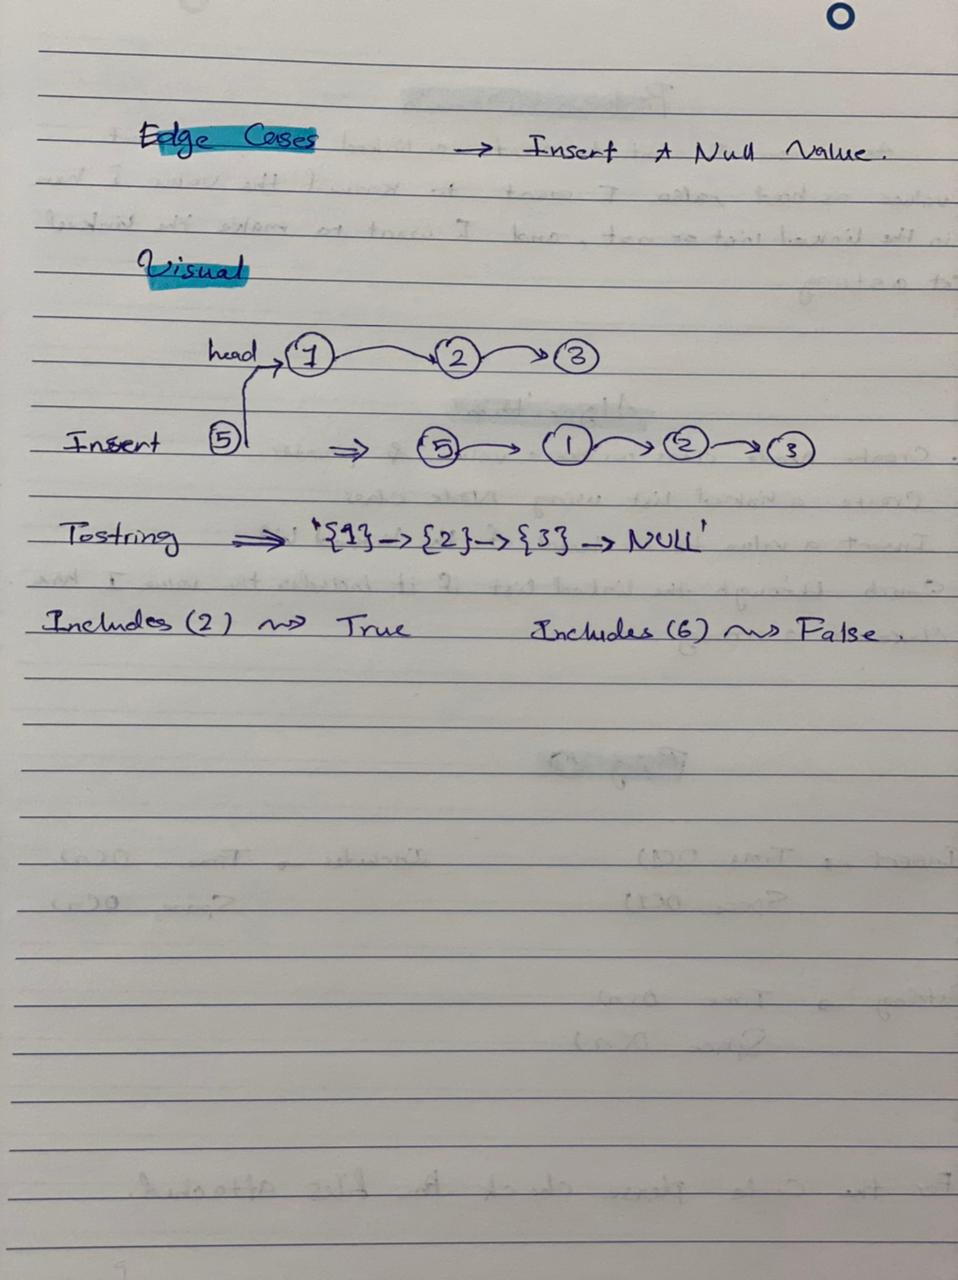 Edge Cases → Insert A Null Value.
Visual
head 1 2 3
Insert 5 ⇒ 5 → 1 → 2 → 3
Tostring ⇒ '{1}->{2}->{3}->NULL'
Includes (2) ~> True Includes (6) ~> False.